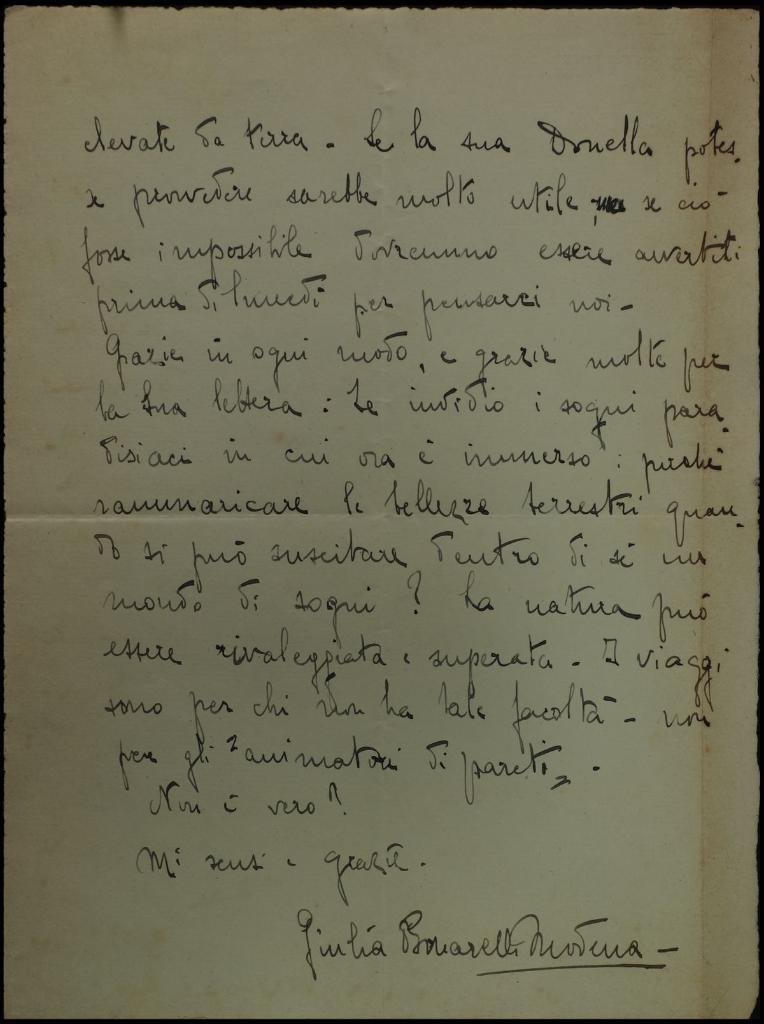 elevate da terra - Se la sua Donella potes-
se provvedere sarebbe molto utile, se ciò
fosse impossibile dovremmo essere avvertiti
prima di lunedì per pensarci noi -
Grazie in ogni modo, e grazie molte per
la sua lettera: Le invidio i sogni para-
disiaci in cui ora è immerso: perché
rammaricare le bellezze terrestri quan-
do si può suscitare dentro di sé un
mondo di sogni? La natura può
essere rivaleggiata e superata - I viaggi
sono per chi non ha tale facoltà - non
per gli "animatori di pareti" -
Non è vero?
Mi scusi e grazie.
Giulia Bonarelli Modena -